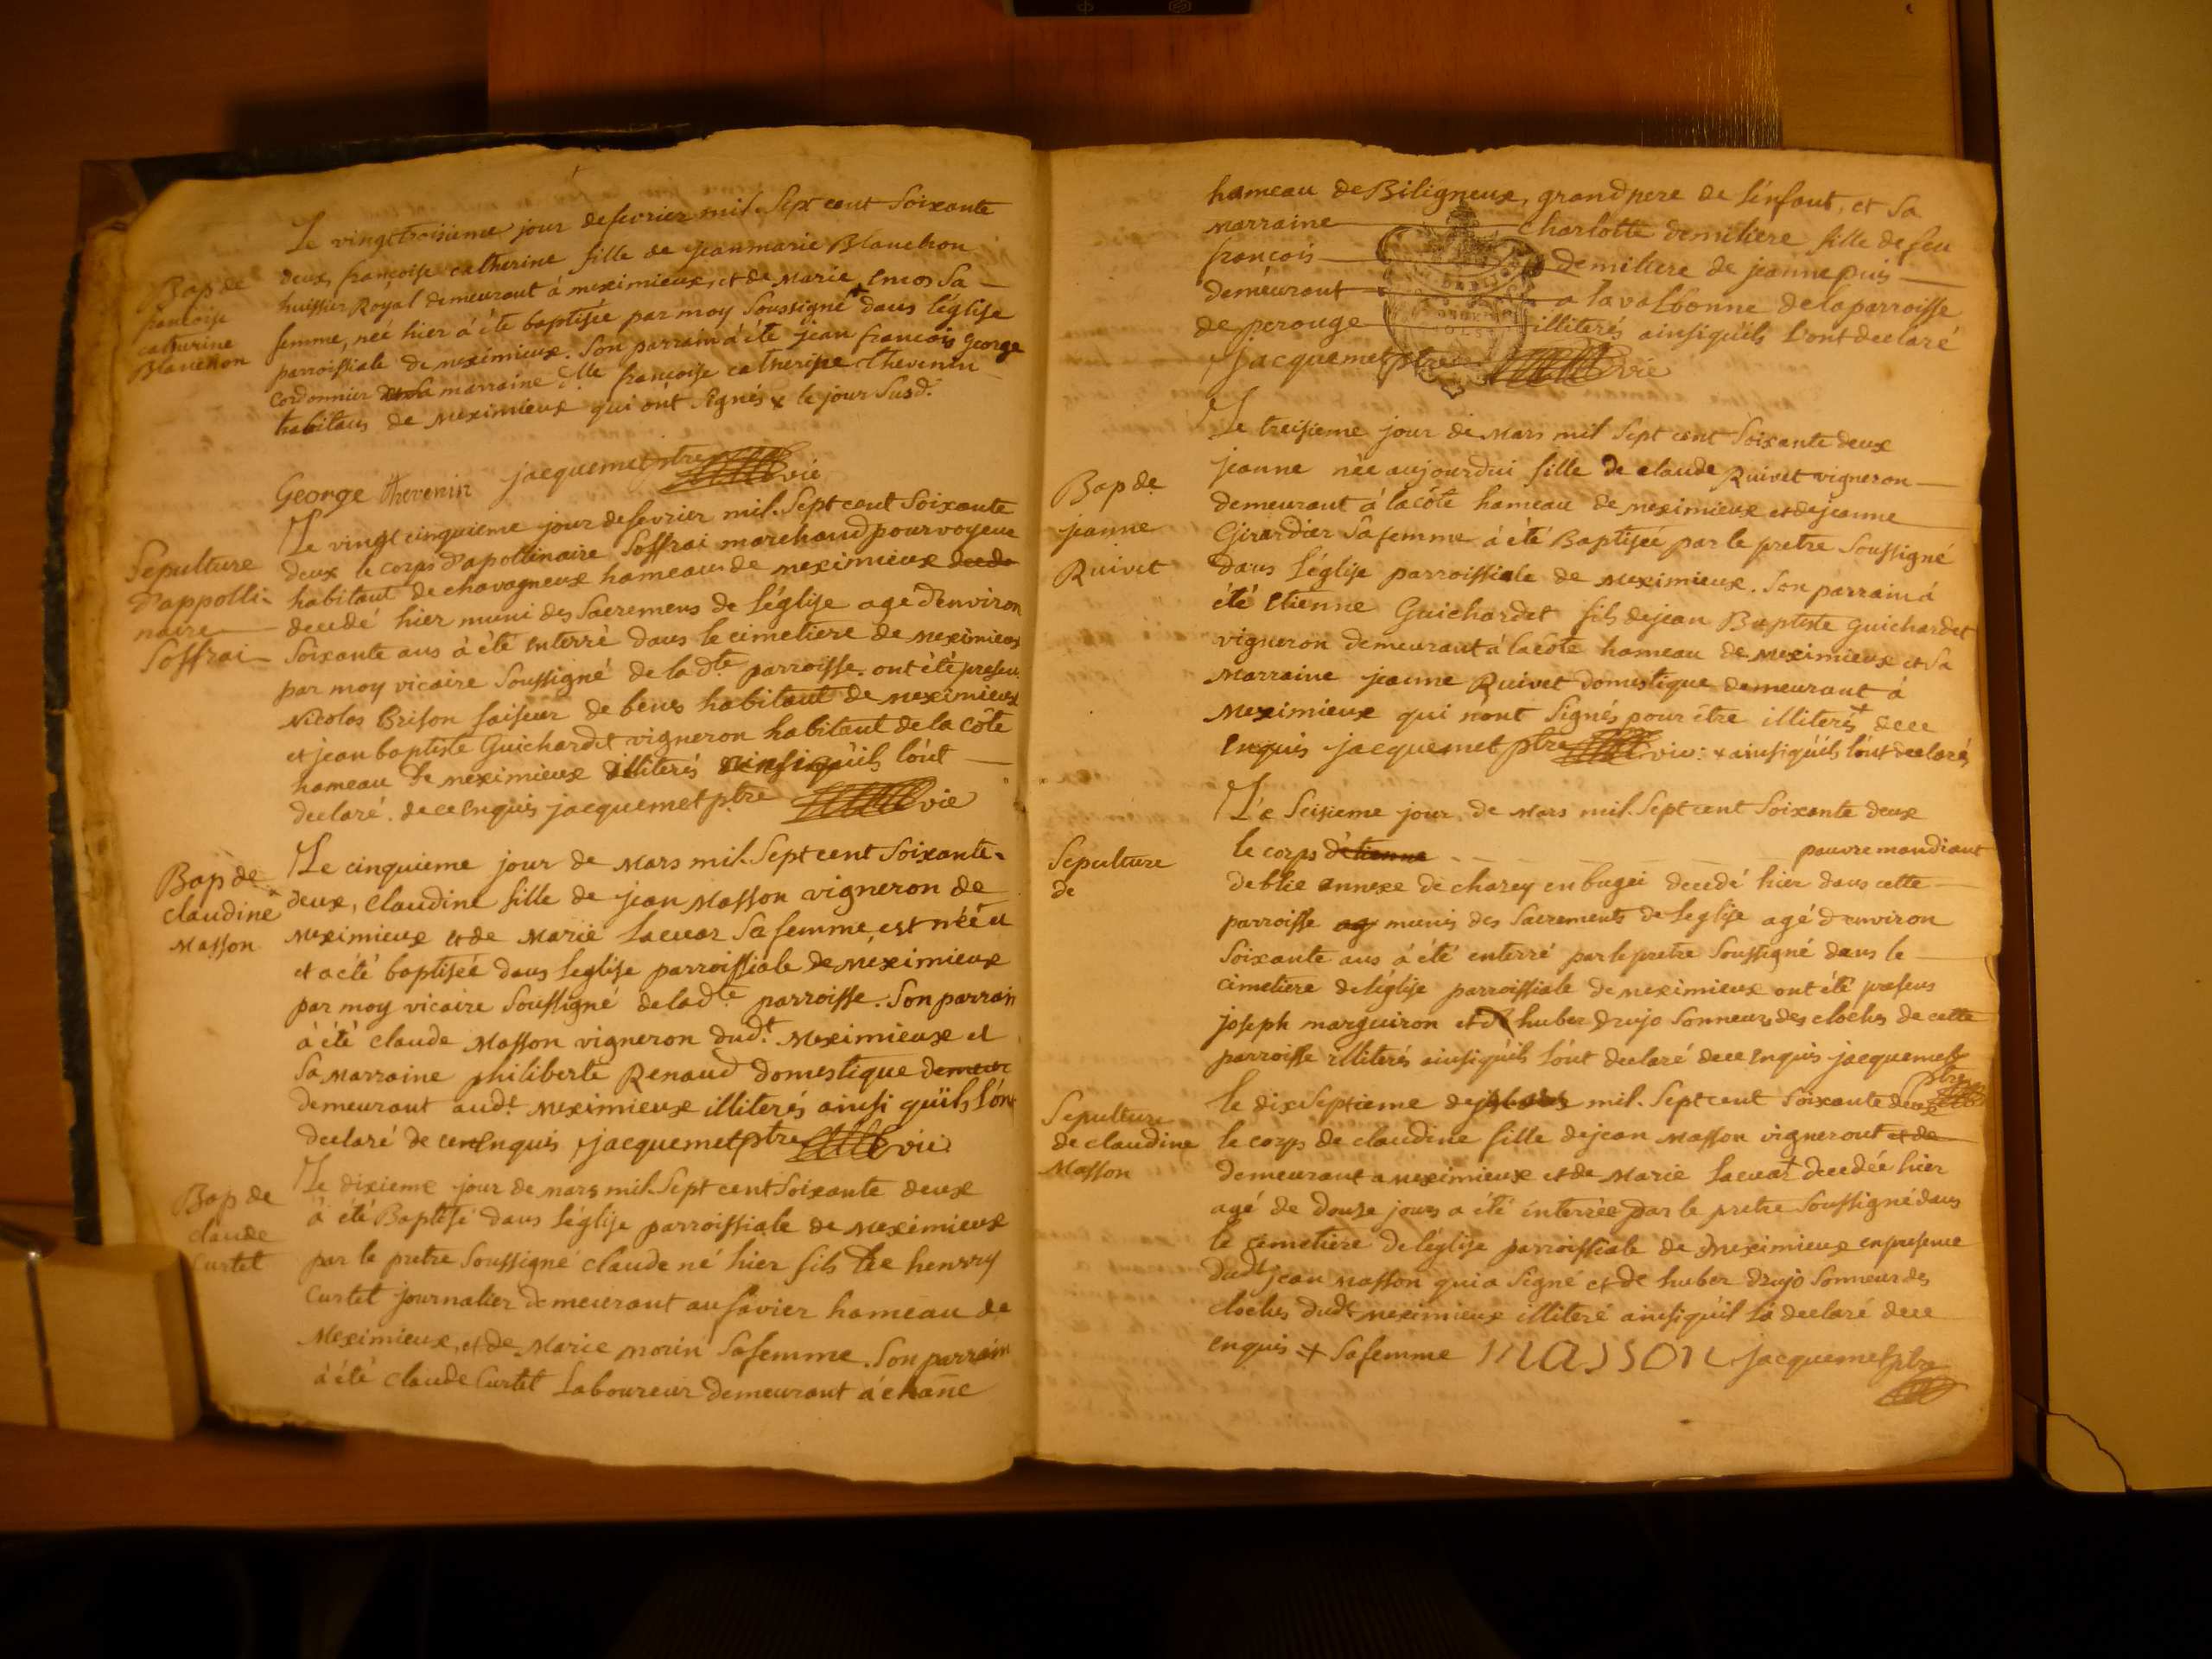 Le vingt troisieme jour de fevrier mil sept cent soixante
Bap de
francoise
catherine
Blanchon
deux, francoise catherine fille de jean marie Blanchon
huissier Royal demeurant à meximieux, et de marie sa
femme, neé hier à été baptisée par moy soussigné dans l'église
parroissiale de meximieux. Son parrain à été jean francois george
cordonnier et sa marraine dlle francoise catherine thevenin
habitans de meximieux qui ont signés x le jour susd.
George thevenin jacquemet ptre vic
Sepulture
d'appolli-
naire
Soffrai
Le vingt cinquieme jour de fevrier mil sept cent soixante
deux le corps d'apollinaire Soffrai marchand pourvoyeur
habitant de chavagneux hameau de meximieux decede
decedé hier muni des sacremens de l'église agé d'environ
soixante ans à été enterré dans le cimetiere de meximieux
par moy vicaire soussigné de lad.te parroisse. ont été presens
Nicolas Brison faiseur de benes habitant de meximieux
et jean baptiste Guichardet vigneron habitant de la côte
hameau de meximieux illiterés ainsi qu'ils l'ont
declaré. de ce enquis jacquemet ptre vic
Bap de
claudine
Masson
Le cinquieme jour de Mars mil sept cent soixante-
deux, claudine fille de jean Masson vigneron de
meximieux et de Marie Lacuar sa femme est néé et
et a été baptisée dans l'eglise parroissiale de meximieux
par moy vicaire soussigné de lad.te parroisse. Son parrain
à été claude Masson vigneron dud.t Meximieux et
sa marraine philiberte Renaud domestique demeur
demeurant aud.t meximieux illiterés ainsi qu'ils l'ont
declaré de ce enquis jacquemet ptre vic
Bap de
claude
Curtet
Le dixieme jour de mars mil sept cent soixante deux
à été Baptisé dans l'église parroissiale de Meximieux
par le pretre soussigné claude né hier fils de henrry
Curtet journalier demeurant au favier hameau de
Meximieux, et de Marie morin sa femme. Son parrain
à été claude Curtet Laboureur demeurant à
hameau de Biligneux, grand pere de l'enfant, et sa
marraine charlotte demiliere fille de feu
francois demiliere de jeanne puis
demeurant a la valbonne de la parroisse
de perouge illiterés ainsi qu'ils l'ont declaré
jacquemet ptre vic
Bap de
jeanne
Ruivet
Le treisieme jour de Mars mil sept cent soixante deux
jeanne née aujourdui fille de claude Ruivet vigneron
demeurant à la côte hameau de meximieux et de jeanne
Girardier sa femme à été Baptisée par le pretre soussigné
dans l'église parroissiale de Meximieux. Son parrain à
été Etienne Guichardet fils de jean Baptiste Guichardet
vigneron demeurant à la côte hameau de Meximieux et sa
Marraine jeanne Ruivet domestique demeurant à
Meximieux qui n'ont signés pour être illiterés + de ce
enquis jacquemet ptre vic: + ainsi qu'ils l'ont declaré
Sepulture
de
Le seisieme jour de Mars mil sept cent soixante deux
le corps d'etienne pauvre mandiant
de blie annexe de charey en bugei decedé hier dans cette
parroisse ag munis des sacrements de l'eglise agé d'environ
soixante ans à été enterré par le pretre soussigné dans le
cimetiere de l'église parroissiale de meximieux ont été presens
joseph marguiron et d huber drujo sonneurs des cloches de cette
parroisse illiterés ainsi qu'ils l'ont declaré de ce enquis jacquemet
ptre
Sepulture
de claudine
Masson
le dix septieme de mil sept cent soixante deux
le corps de claudine fille de jean Masson vigneront et de
demeurant a meximieux et de Marie Lacuar + decedée hier
agé de douze jours a été enterrée par le pretre soussigné dans
le cemetiere de l'église parroissiale de Meximieux en presence
dud.t jean Masson qui a signé et de huber drujo sonneur des
cloches dud.t meximieux illiteré ainsi qu'il l'a declaré de ce
enquis + sa femme masson jacquemet ptre